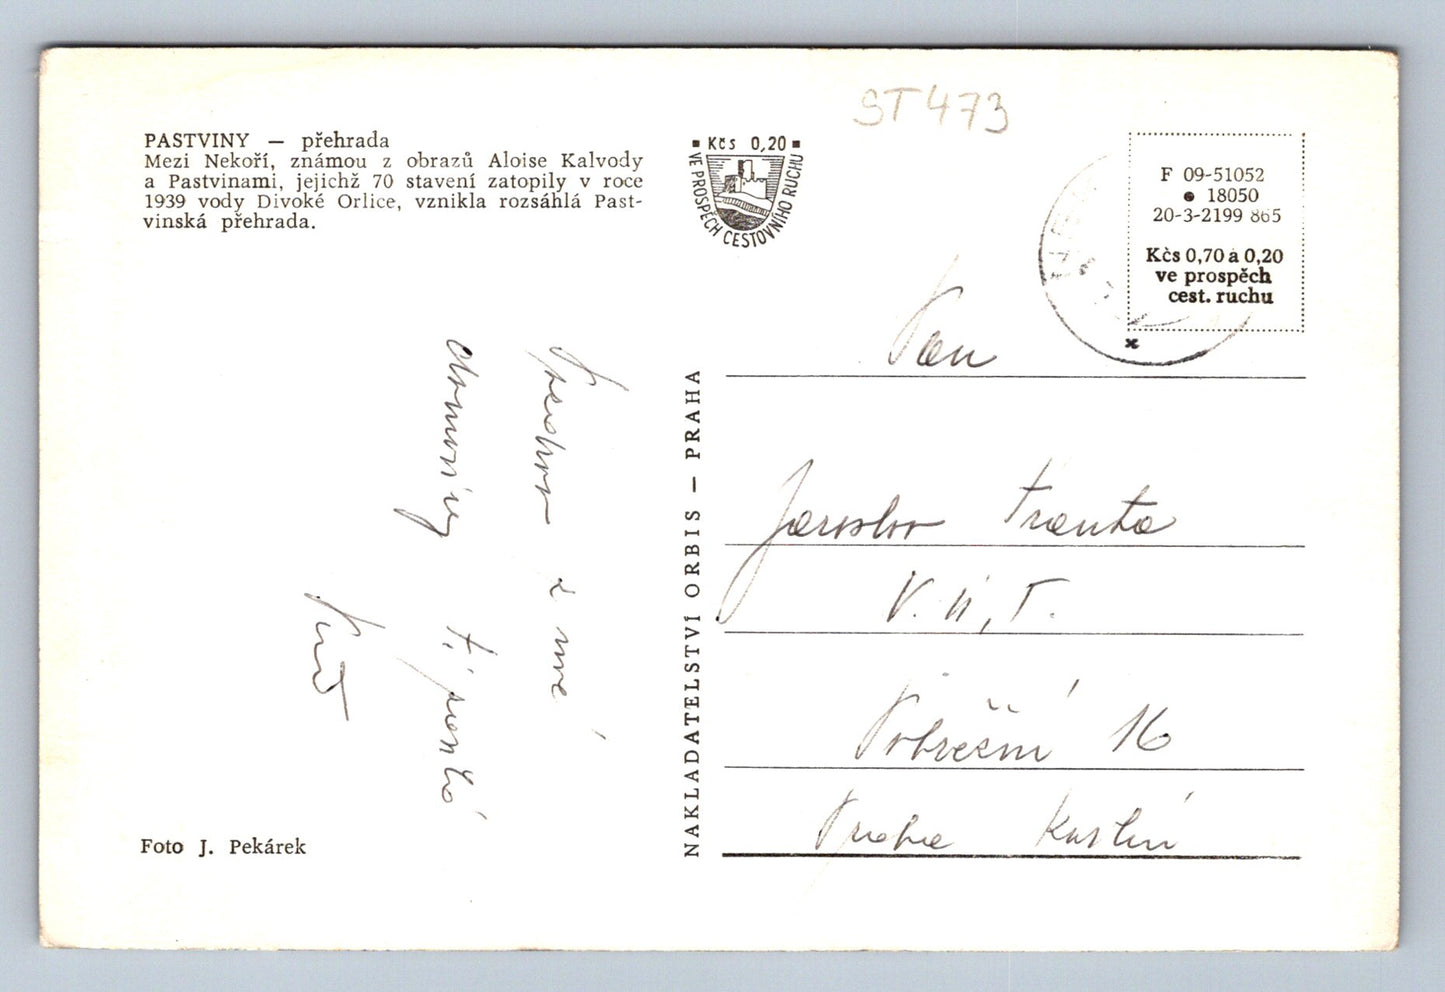 ST 473
PASTVINY — přehrada
Mezi Nekoří, známou z obrazů Aloise Kalvody
a Pastvinami, jejichž 70 stavení zatopily v roce
1939 vody Divoké Orlice, vznikla rozsáhlá Past-
vinská přehrada.
Kčs 0,20
VE PROSPĚCH CESTOVNÍHO RUCHU
F 09-51052
18050
20-3-2199 865
Kčs 0,70 a 0,20
ve prospěch
cest. ruchu
Pan
Jaroslav Franta
V. Ú, T.
Pobřežní 16
Praha Karlín
NAKLADATELSTVÍ ORBIS — PRAHA
Foto J. Pekárek